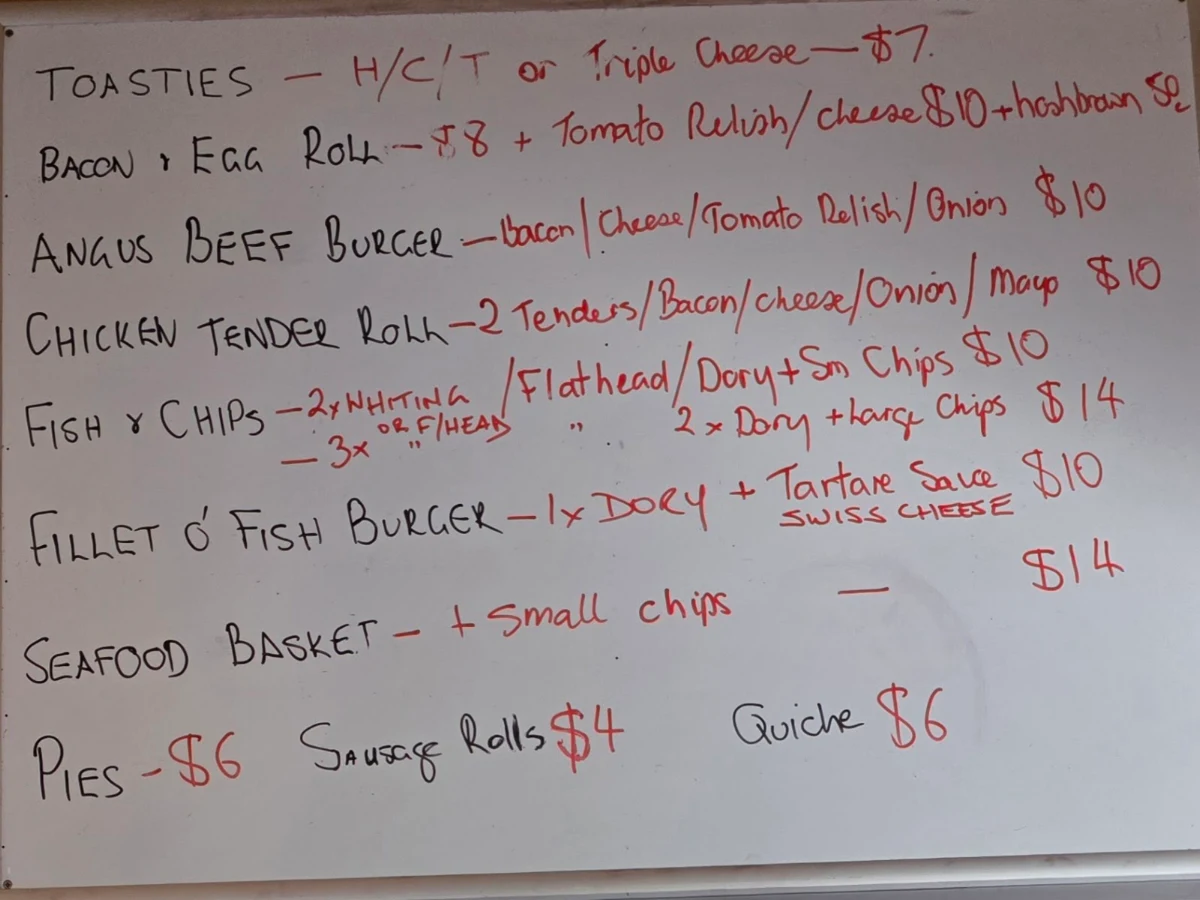 TOASTIES — H/C/T or Triple Cheese — $7.
BACON & EGG ROLL — $8 + Tomato Relish/cheese $10 + hashbrown 50c
ANGUS BEEF BURGER — Bacon/Cheese/Tomato Relish/Onion $10
CHICKEN TENDER ROLL — 2 Tenders/Bacon/cheese/Onion/Mayo $10
FISH & CHIPS — 2x WHITING /Flathead/Dory + Sm Chips $10
— 3x " OR F/HEAD " 2 x Dory + Large Chips $14
FILLET O' FISH BURGER — 1x DORY + Tartare Sauce $10
SWISS CHEESE
SEAFOOD BASKET — + Small chips — $14
PIES - $6 SAUSAGE Rolls $4 Quiche $6